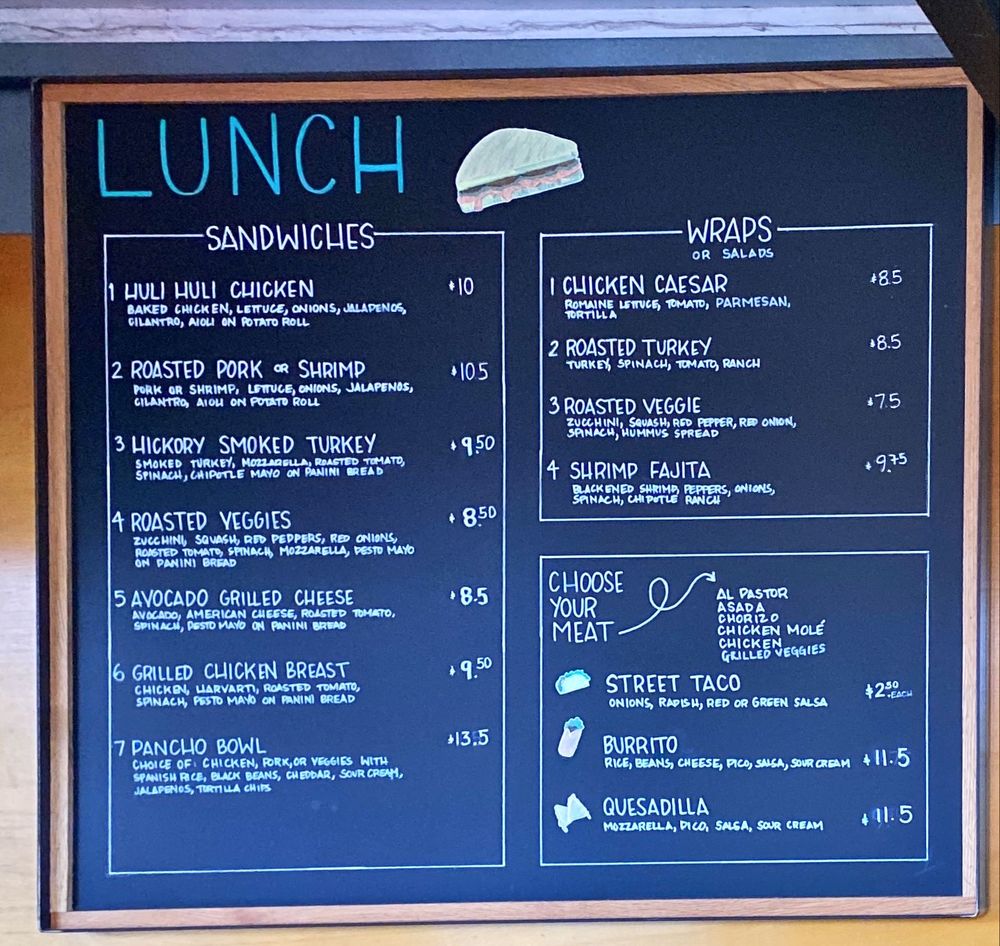 LUNCH
SANDWICHES
1 HULI HULI CHICKEN $10
BAKED CHICKEN, LETTUCE, ONIONS, JALAPENOS,
CILANTRO, AIOLI ON POTATO ROLL
2 ROASTED PORK OR SHRIMP $10.5
PORK OR SHRIMP, LETTUCE, ONIONS, JALAPENOS,
CILANTRO, AIOLI ON POTATO ROLL
3 HICKORY SMOKED TURKEY $9.50
SMOKED TURKEY, MOZZARELLA, ROASTED TOMATO,
SPINACH, CHIPOTLE MAYO ON PANINI BREAD
4 ROASTED VEGGIES $8.50
ZUCCHINI, SQUASH, RED PEPPERS, RED ONIONS,
ROASTED TOMATO, SPINACH, MOZZARELLA, PESTO MAYO
ON PANINI BREAD
5 AVOCADO GRILLED CHEESE $8.5
AVOCADO, AMERICAN CHEESE, ROASTED TOMATO,
SPINACH, PESTO MAYO ON PANINI BREAD
6 GRILLED CHICKEN BREAST $9.50
CHICKEN, HARVARTI, ROASTED TOMATO,
SPINACH, PESTO MAYO ON PANINI BREAD
7 PANCHO BOWL $13.5
CHOICE OF: CHICKEN, PORK, OR VEGGIES WITH
SPANISH RICE, BLACK BEANS, CHEDDAR, SOUR CREAM,
JALAPENOS, TORTILLA CHIPS
WRAPS
OR SALADS
1 CHICKEN CAESAR $8.5
ROMAINE LETTUCE, TOMATO, PARMESAN,
TORTILLA
2 ROASTED TURKEY $8.5
TURKEY, SPINACH, TOMATO, RANCH
3 ROASTED VEGGIE $7.5
ZUCCHINI, SQUASH, RED PEPPER, RED ONION,
SPINACH, HUMMUS SPREAD
4 SHRIMP FAJITA $9.75
BLACKENED SHRIMP, PEPPERS, ONIONS,
SPINACH, CHIPOTLE RANCH
CHOOSE
YOUR
MEAT
AL PASTOR
ASADA
CHORIZO
CHICKEN MOLÉ
CHICKEN
GRILLED VEGGIES
STREET TACO $2.50 EACH
ONIONS, RADISH, RED OR GREEN SALSA
BURRITO
RICE, BEANS, CHEESE, PICO, SALSA, SOUR CREAM $11.5
QUESADILLA
MOZZARELLA, PICO, SALSA, SOUR CREAM $11.5